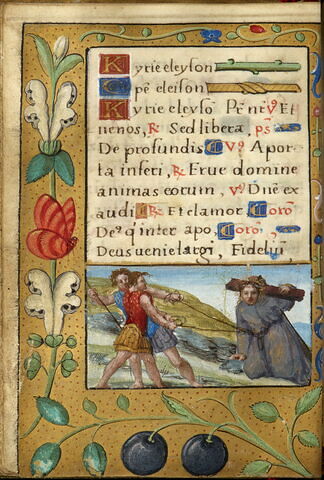 Kyrie eleyson
Xpē eleison
Kyrie eleysō Pr̄ nr̄ Et
nenos, ℟ Sed libera, ps̄
De profundis ℣ A por
ta inferi, ℟ Erue domine
animas eorum, ℣ Dn̄e ex
audi ℟ Et clamor Orō
Deꝰ q inter apo, Orō
Deus venie largi, Fideliū,